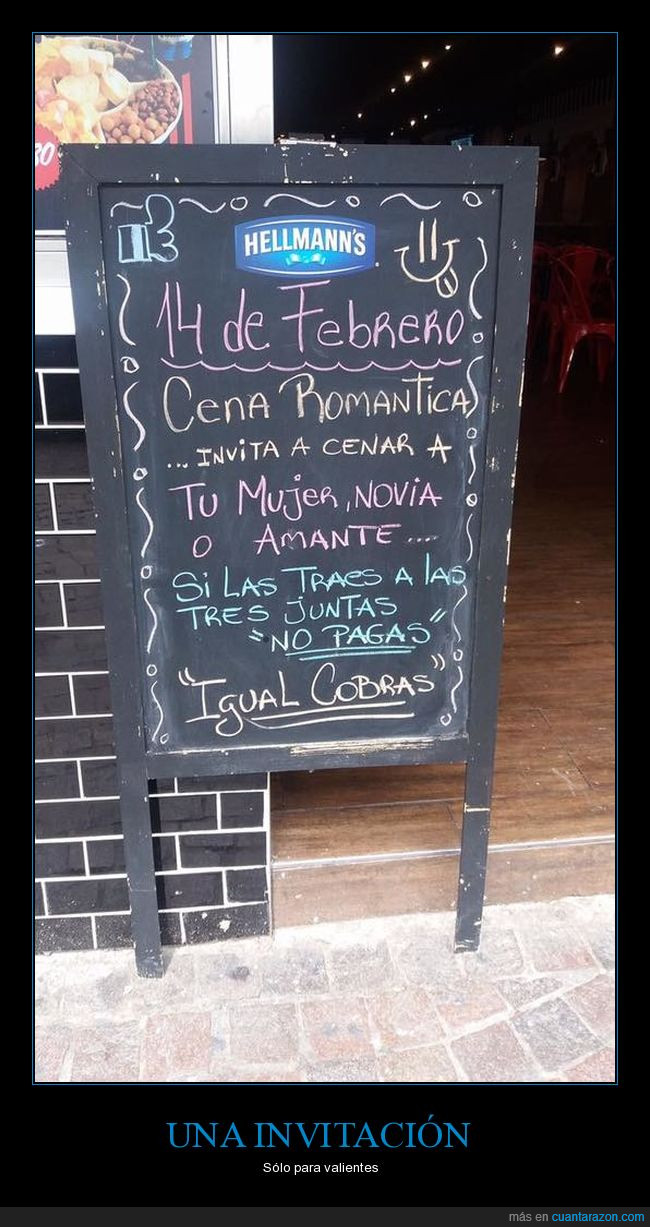 30
HELLMANN'S
14 de Febrero
Cena Romantica
... invita a cenar a
Tu Mujer, novia
o amante....
Si las traes a las
tres juntas
"no pagas"
"Igual Cobras"
UNA INVITACIÓN
Sólo para valientes
más en cuantarazon.com